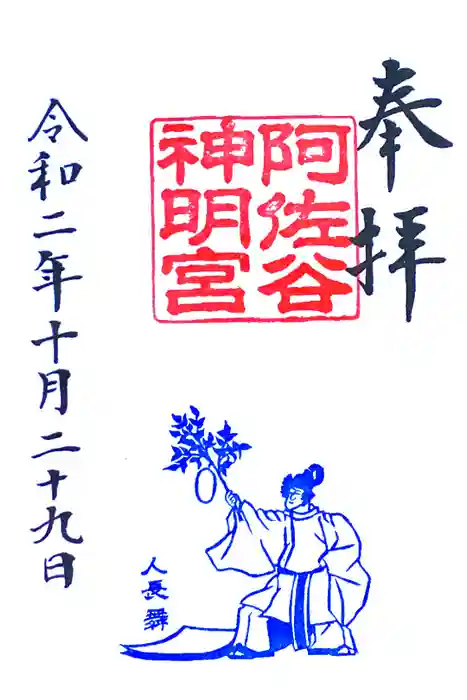 奉拝
阿佐谷
神明宮
人長舞
令和二年十月二十九日